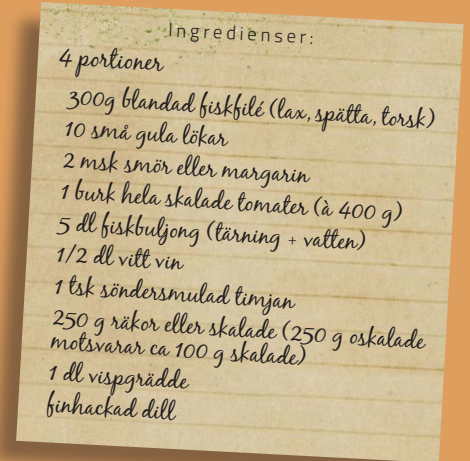 Ingredienser:
4 portioner
300g blandad fiskfilé (lax, spätta, torsk)
10 små gula lökar
2 msk smör eller margarin
1 burk hela skalade tomater (à 400 g)
5 dl fiskbuljong (tärning + vatten)
1/2 dl vitt vin
1 tsk söndersmulad timjan
250 g räkor eller skalade (250 g oskalade
motsvarar ca 100 g skalade)
1 dl vispgrädde
finhackad dill